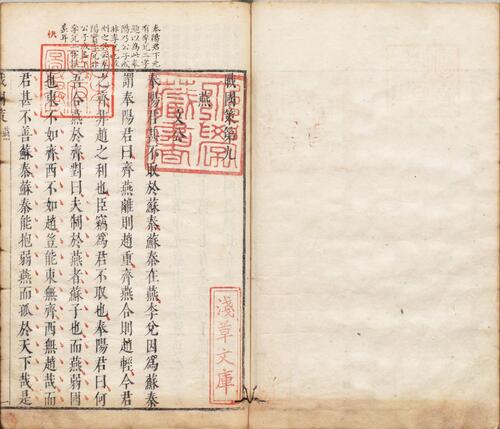 戰國策第九
燕
文公
奉陽君甚不取於蘇秦蘇秦在燕李兌因爲蘇秦
謂奉陽君曰齊燕離則趙重齊燕合則趙輕今君
之齊非趙之利也臣竊爲君不取也奉陽君曰何
吾合燕於齊對曰夫制於燕者蘇子也而燕弱國
也東不如齊西不如趙豈能東無齊西無趙哉而
君甚不善蘇秦蘇秦能抱弱燕而孤於天下哉是
戰國策 燕 一
奉陽君下元
有李兌二字
陽乃公子成
藏書
淺草文庫